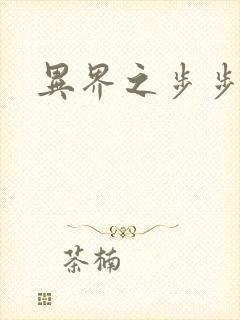 異界之步步
茶楠